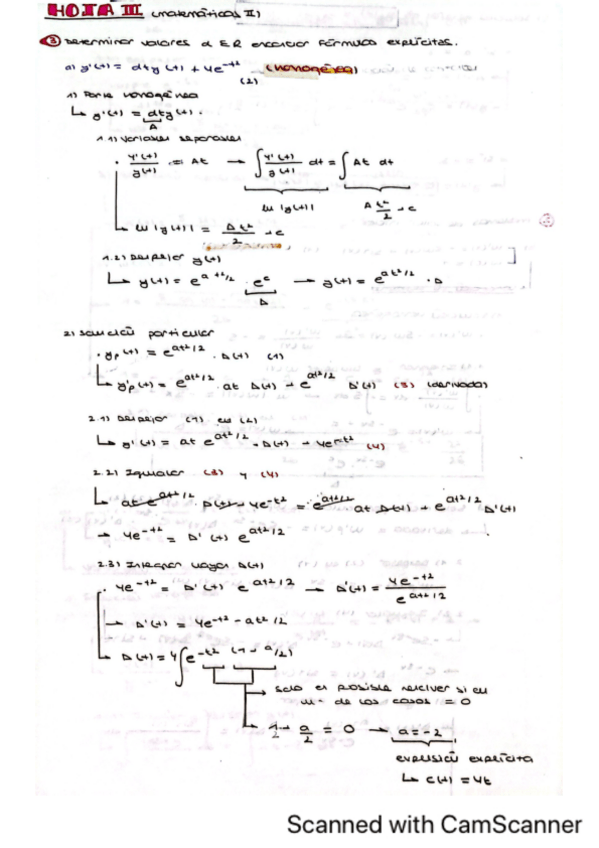 HOJA III (matemáticas II)
③ Determinar valores a ER encontrar fórmulas explícitas.
a) y'(t) = aty(t) + 4e^-t² (homogénea)
(2)
1) Parte homogénea
↳ y'(t) = aty(t).
A
1.1) Variables separables
· y'(t)/y(t) = At → ∫ y'(t)/y(t) dt = ∫ At dt
ln|y(t)| A t²/2 + c
↳ ln|y(t)| = At²/2 + c
1.2) Despejar y(t)
↳ y(t) = e^(at²/2) · e^c → y(t) = e^(at²/2) · D
D
2) Solución particular
· yp(t) = e^(at²/2) · D(t) (1)
↳ y'p(t) = e^(at²/2) · at D(t) + e^(at²/2) D'(t) (3) (derivada)
2.1) Despejar (1) en (2)
↳ y'(t) = at e^(at²/2) · D(t) + 4e^-t² (4)
2.2) Igualar (3) y (4)
↳ at e^(at²/2) D(t) + 4e^-t² = e^(at²/2) at D(t) + e^(at²/2) D'(t)
→ 4e^-t² = D'(t) e^(at²/2)
2.3) Integrar D(t)
· 4e^-t² = D'(t) e^(at²/2) → D'(t) = 4e^-t² / e^(at²/2)
→ D'(t) = 4e^(-t² - at²/2)
↳ D(t) = 4∫e^-t² (1 - a/2)
→ solo es posible resolver si en
un - de los casos = 0
a/2 = 0 → a = -2
expresión explícita
↳ c(t) = 4t
Scanned with CamScanner